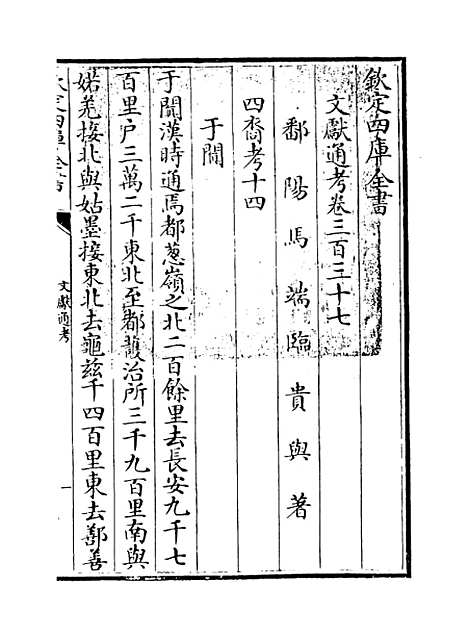 欽定四庫全書
文獻通考卷三百三十七
鄱陽馬端臨貴與著
四裔考十四
于闐
于闐漢時通焉都葱嶺之北二百餘里去長安九千七
百里户三萬二千東北至都䕶治所三千九百里南與
婼羌接北與姑墨接東北去龜兹千四百里東去鄯善
文獻通考
一